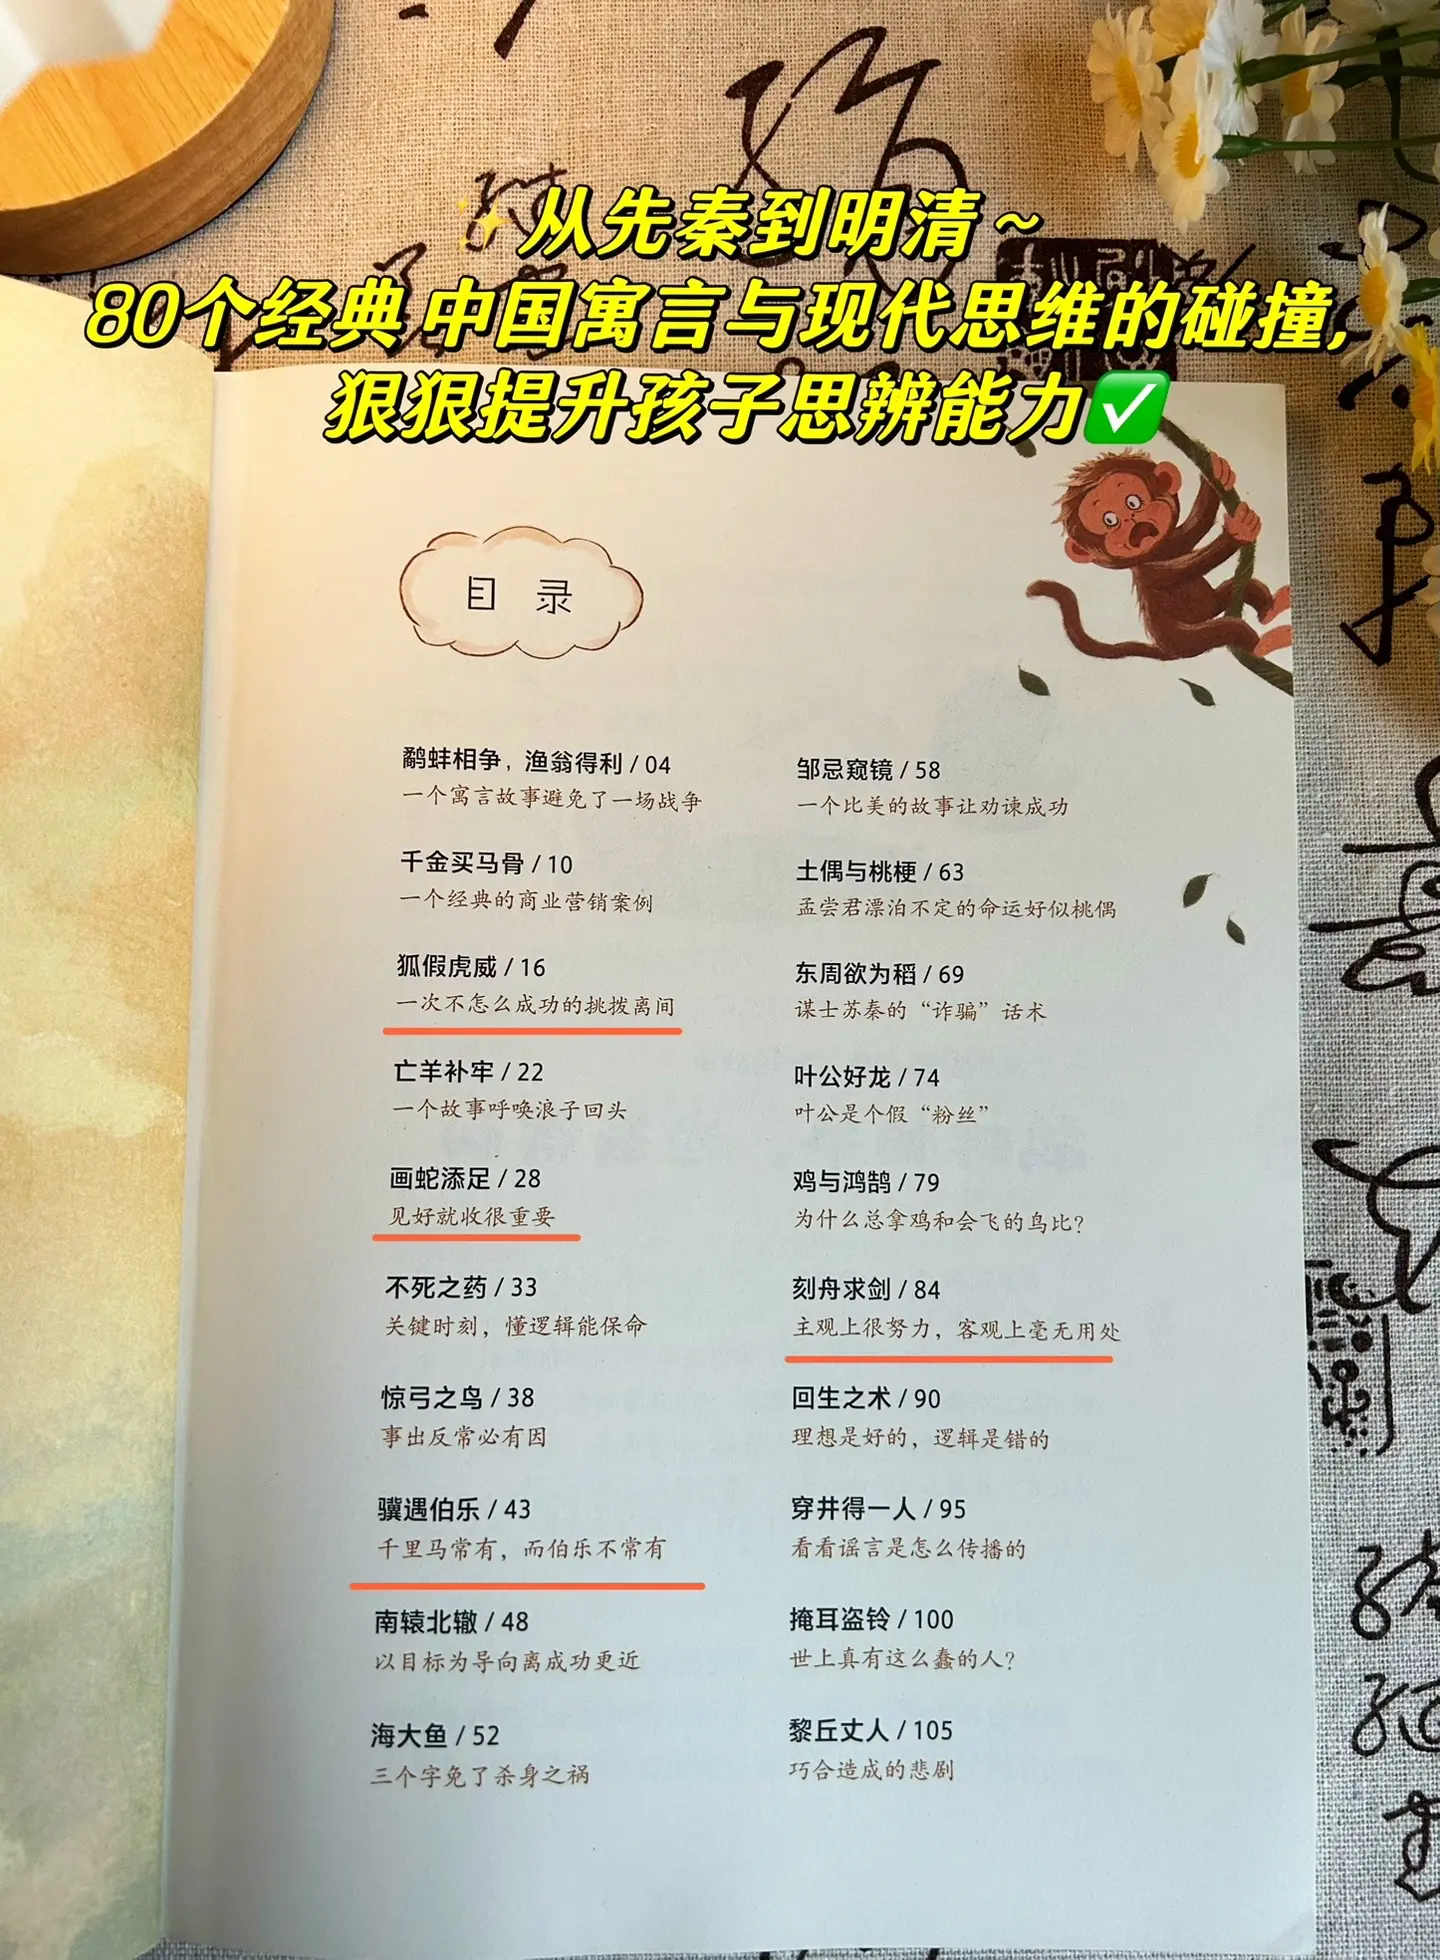 从先秦到明清~
80个经典 中国寓言与现代思维的碰撞,
狠狠提升孩子思辨能力✅
目 录
鹬蚌相争，渔翁得利 / 04
一个寓言故事避免了一场战争
千金买马骨 / 10
一个经典的商业营销案例
狐假虎威 / 16
一次不怎么成功的挑拨离间
亡羊补牢 / 22
一个故事呼唤浪子回头
画蛇添足 / 28
见好就收很重要
不死之药 / 33
关键时刻，懂逻辑能保命
惊弓之鸟 / 38
事出反常必有因
骥遇伯乐 / 43
千里马常有，而伯乐不常有
南辕北辙 / 48
以目标为导向离成功更近
海大鱼 / 52
三个字免了杀身之祸
邹忌窥镜 / 58
一个比美的故事让劝谏成功
土偶与桃梗 / 63
孟尝君漂泊不定的命运好似桃偶
东周欲为稻 / 69
谋士苏秦的“诈骗”话术
叶公好龙 / 74
叶公是个假“粉丝”
鸡与鸿鹄 / 79
为什么总拿鸡和会飞的鸟比？
刻舟求剑 / 84
主观上很努力，客观上毫无用处
回生之术 / 90
理想是好的，逻辑是错的
穿井得一人 / 95
看看谣言是怎么传播的
掩耳盗铃 / 100
世上真有这么蠢的人？
黎丘丈人 / 105
巧合造成的悲剧